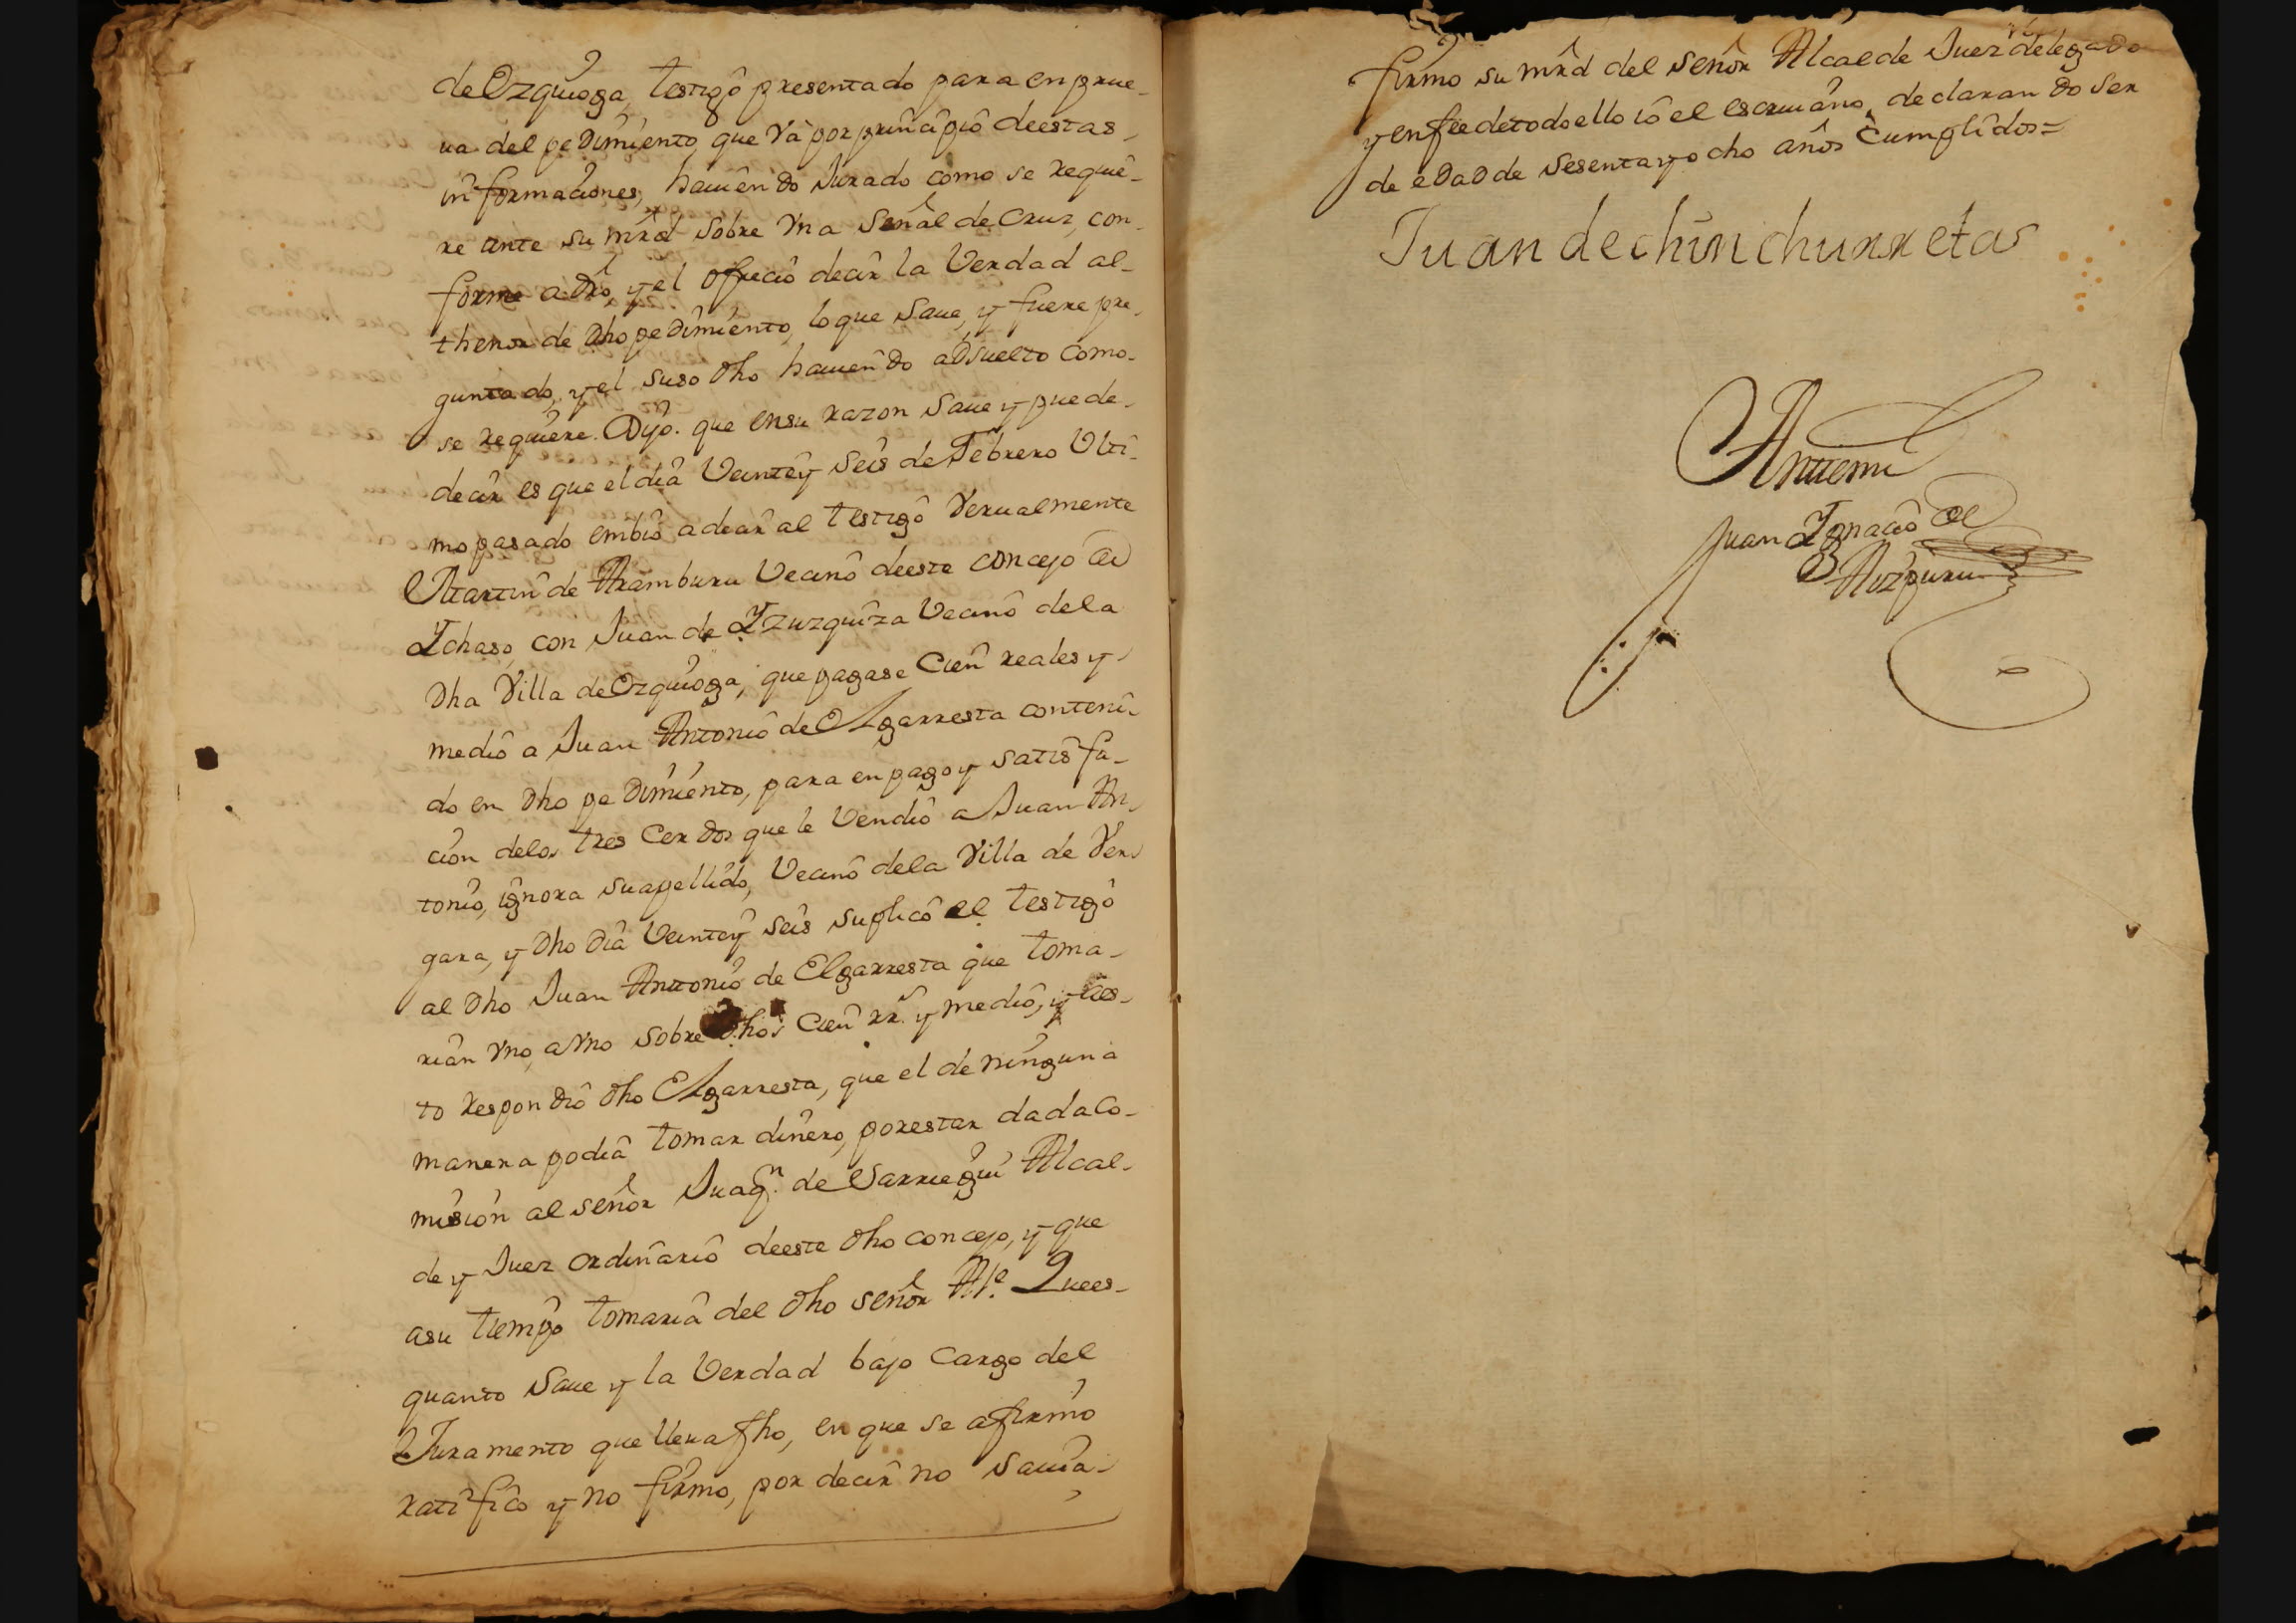 de Ozquioga, testigo presentado para en prue-
va del pedimiento, que va por principio de estas
informaciones, haviendo Jurado como se requie-
re ante su mrd sobre vna señal de Cruz, con-
forme a dro, y el ofrecio decir la Verdad al
thenor de dho pedimiento, lo que save, y fuere pre-
guntado, y el suso dho haviendo absuelto como
se requiere. Dijo. que en su razon save y puede
decir es que el dia Veinte y seis de Febrero Ulti-
mo pasado embio a decir al testigo verualmente
Martin de Aramburu Vecino de este concejo de
Ychaso, con Juan de Yzuzquiza Vecino de la
dha Villa de Ozquioga, que pagase Cien reales y
medio a Juan Antonio de Elgarresta conteni-
do en dho pedimiento, para en pago y satisfa-
cion de los tres Cerdos que le Vendio a Juan An-
tonio, ignora su apellido, Vecino de la Villa de Ver-
gara, y dho dia Veinte y seis suplico el testigo
al dho Juan Antonio de Elgarresta que toma-
rian vno, a vno sobre dhos Cien rr.s y medio, y a es-
to respondio dho Elgarresta, que el de ninguna
manera podia tomar dinero, por estar dada co-
mision al señor Juaqn. de Sarriegui Alcal-
de y Juez ordinario de este dho concejo, y que
a su tiempo tomaria del dho señor Ale. Que es
quanto save y la Verdad bajo cargo del
Juramento que lleva fho, en que se afirmo
ratifico y no firmo, por decir no savia
firmo su mrd del señor Alcalde Juez delegado
y en fee de todo ello io el escriuano, declarando ser
de edad de sesenta y ocho años Cumplidos=
Juan de chinchurretas
Ante mi
Juan Ygnacio de
Aizpuru